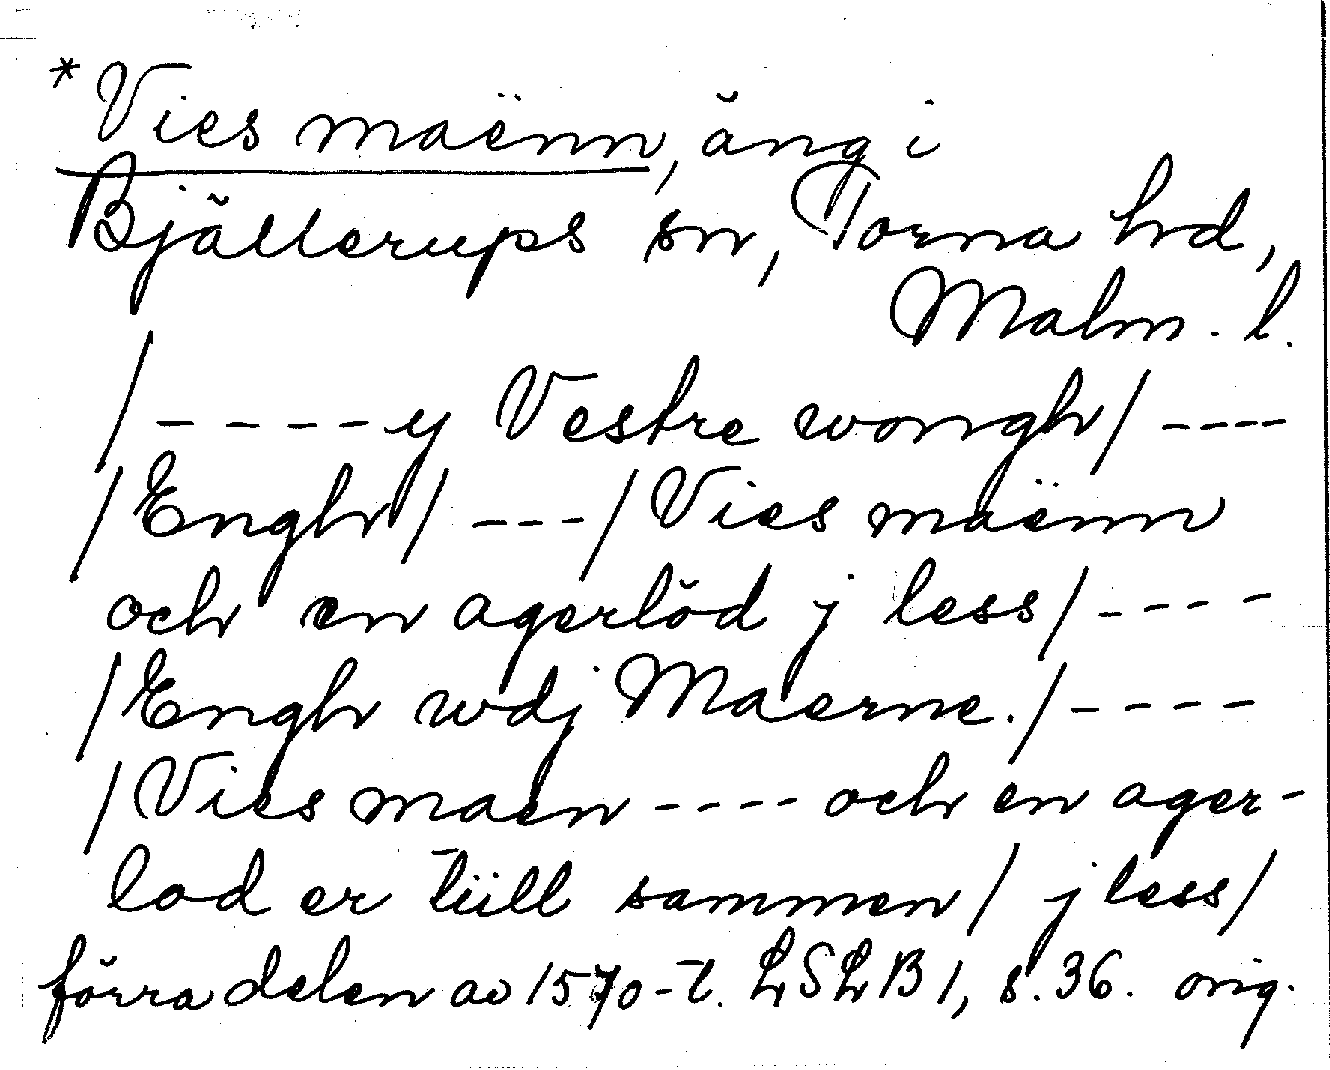 *Vies maënn, äng i
Bjällerups sn, Torna hd,
Malm. l.
/-----y Vestre wongh/----
/Engh/---/Vies maënn
och en agerlöd j less/----
/Engh wdj Maerne./----
/Vies maen----och en ager-
lod er tiill sammen/ j less/
förra delen av 1570-t. LSLB 1, s. 36. orig.